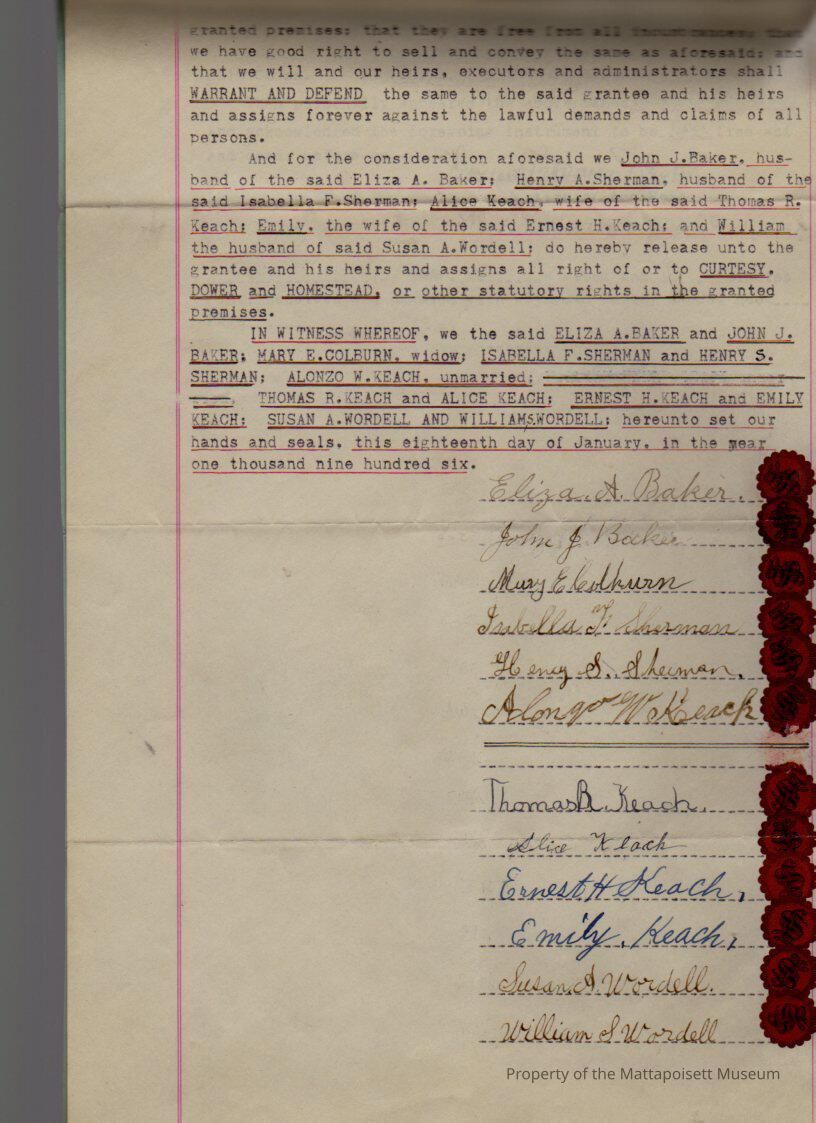 granted premises; that they are free from all incumbrances; that
we have good right to sell and convey the same as aforesaid; and
that we will and our heirs, executors and administrators shall
WARRANT AND DEFEND the same to the said grantee and his heirs
and assigns forever against the lawful demands and claims of all
persons.
And for the consideration aforesaid we John J.Baker, hus-
band of the said Eliza A. Baker; Henry A.Sherman, husband of the
said Isabella F.Sherman; Alice Keach, wife of the said Thomas R.
Keach; Emily, the wife of the said Ernest H.Keach; and William
the husband of said Susan A.Wordell; do hereby release unto the
grantee and his heirs and assigns all right of or to CURTESY,
DOWER and HOMESTEAD, or other statutory rights in the granted
premises.
IN WITNESS WHEREOF, we the said ELIZA A.BAKER and JOHN J.
BAKER; MARY E.COLBURN, widow; ISABELLA F.SHERMAN and HENRY S.
SHERMAN; ALONZO W.KEACH, unmarried;
THOMAS R.KEACH and ALICE KEACH; ERNEST H.KEACH and EMILY
KEACH; SUSAN A.WORDELL AND WILLIAM S.WORDELL; hereunto set our
hands and seals, this eighteenth day of January, in the year
one thousand nine hundred six.
Eliza. A. Baker.
John J Baker
Mary E Colburn
Isabella F. Sherman
Henry S. Sherman.
Alonzo W Keach
Thomas R. Keach.
Alice Keach
Ernest H Keach,
Emily. Keach,
Susan. A. Wordell.
William S Wordell
Property of the Mattapoisett Museum